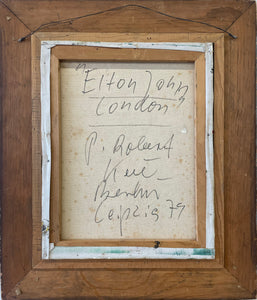 "Elton John
London"
P. Robert
Berlin
Leipzig 79